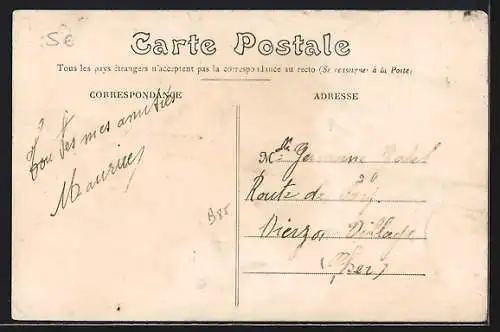 5€
Carte Postale
Tous les pays étrangers n'acceptent pas la correspondance au recto (Se renseigner à la Poste)
CORRESPONDANCE
ADRESSE
Toutes mes amitiés
Maurice
Mlle Germaine
Route de
Vierzon Village
(Cher)
B85